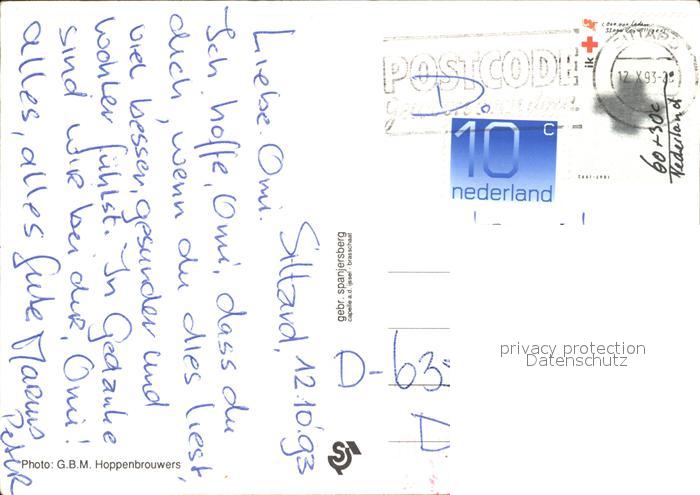 Sittard, 12.10.93
Liebe Omi.
Ich hoffe, Omi, dass du
dich, wenn du dies liest,
viel besser, gesunder und
wohler fühlst. In Gedanke
sind wir bei dir, Omi!
alles, alles Gute Marcus
Peter
Photo: G.B.M. Hoppenbrouwers
gebr. spanjersberg
capelle a.d. ijssel · brasschaat
POSTCODE
SITTARD
12.X.93-2
ik
60+30c
Nederland
1867-1992
10 c
nederland
D.
D-63
privacy protection
Datenschutz